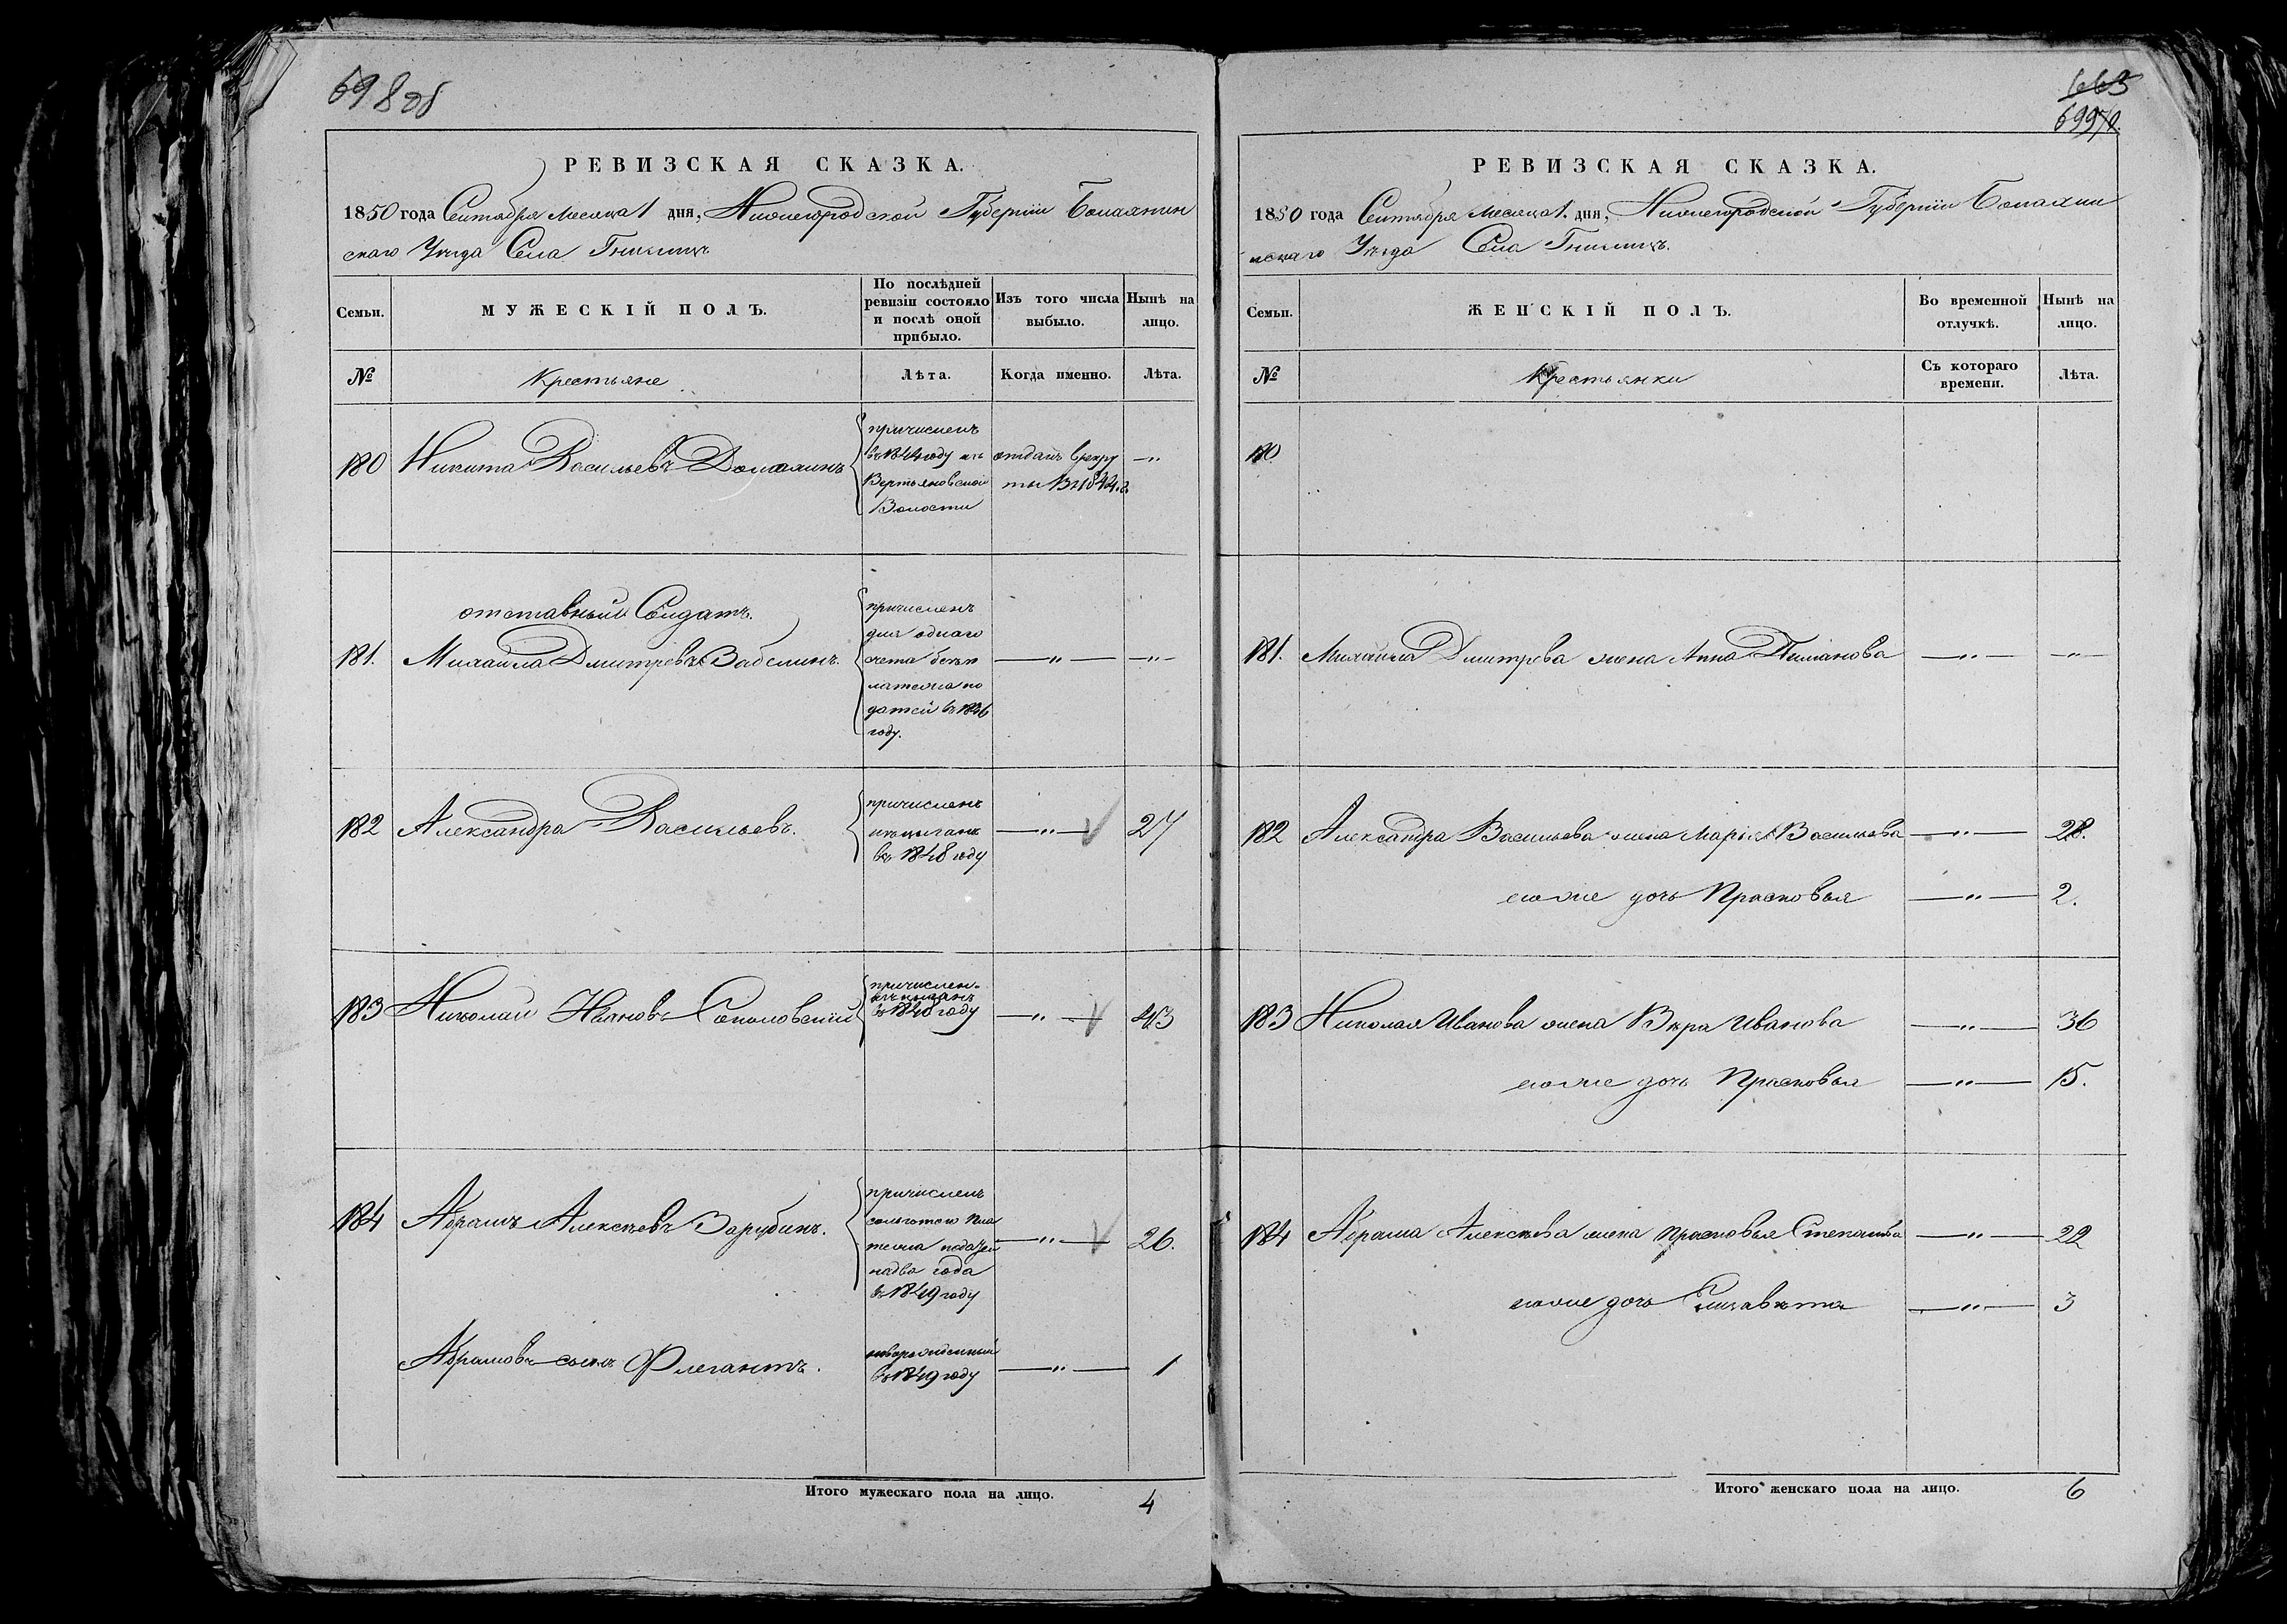 698 об
РЕВИЗСКАЯ СКАЗКА.
1850 года Сентября месяца 1 дня, Нижегородской Губерніи Балахнин
скаго Уѣзда Села Гнилицъ
Семьи. МУЖЕСКІЙ ПОЛЪ. По послѣдней ревизіи состояло и послѣ оной прибыло. Изъ того числа выбыло. Нынѣ на лицо.
№ Крестьяне Лѣта. Когда именно. Лѣта.
180 Никита Васильевъ
причисленъ
въ 1844 году изъ
Вертьяновской
Волости
отданъ в рекру
ты В 1844. г.
отставный Солдатъ.
181. Михайла Дмитревъ Забелинъ.
причисленъ
для однаго
счета безъ п
латежа по
датей въ 1846
году.
182 Александра Васильевъ.
причисленъ
изъ цыганъ
въ 1848 году
27
183 Николай Ивановъ Соколовскій
причислен.
изъ цыганъ
въ 1848 году
43
184 Абрамъ Алексѣевъ Зарубинъ.
причисленъ
сольготою пла
тежа податей
на два года
въ 1849 году
26.
Абрамовъ сынъ Флегантъ.
новорожденный
въ 1849 году
1
Итого мужескаго пола на лицо. 4
663
699
РЕВИЗСКАЯ СКАЗКА.
1850 года Сентября месяца 1. дня, Нижегородской Губерніи Балахни
нскаго Уѣзда Села Гнилицъ.
Семьи. ЖЕНСКІЙ ПОЛЪ. Во временной отлучкѣ. Нынѣ на лицо.
№ Крестьянки Съ котораго времени. Лѣта.
180
181. Михайла Дмитрева жена Анна
182 Александра Васильева жена Марья Васильева 28.
ихже дочь Прасковья 2.
183 Николая Иванова жена Вѣра Иванова 36
ихже дочь Прасковья 15.
184 Абрама Алексѣева жена Прасковья Степанова 22
ихже дочь Елизавѣта 3
Итого женскаго пола на лицо. 6